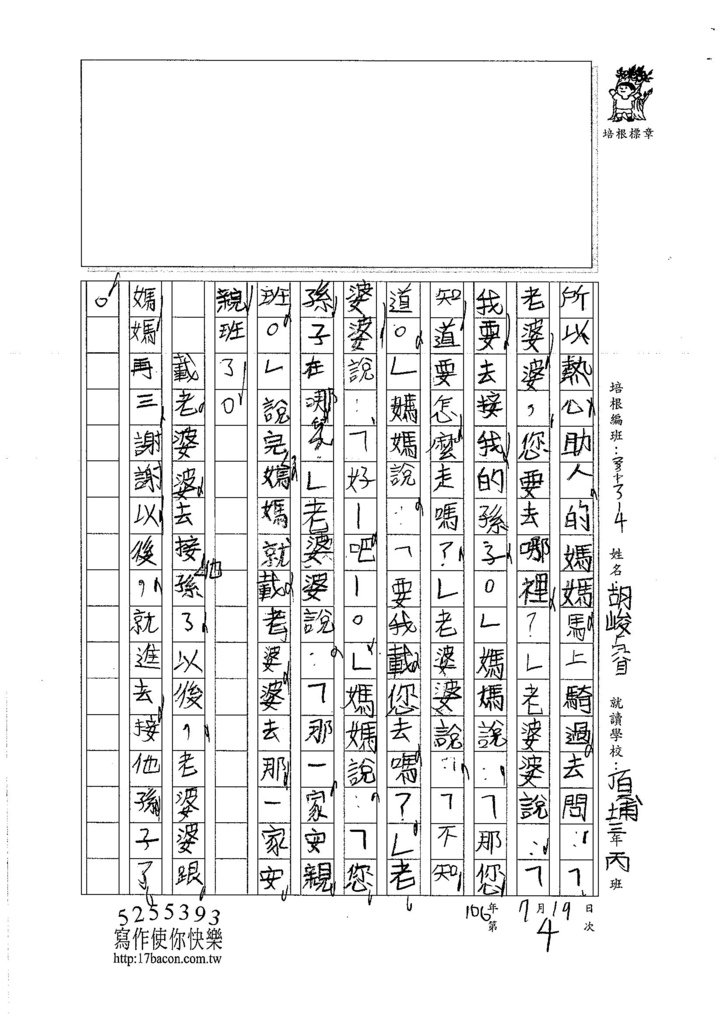 培根標章
培根編班：
姓名：胡峻
就讀學校：三年丙班
106年7月19日
第4次
所以熱心助人的媽媽馬上騎過去問：「
老婆婆，您要去哪裡？」老婆婆說：「
我要去接我的孫子。」媽媽說：「那您
知道要怎麼走嗎？」老婆婆說：「不知
道。」媽媽說：「要我載您去嗎？」老
婆婆說：「好－吧－。」媽媽說：「您
孫子在哪」老婆婆說：「那一家安親
班。」說完媽媽就載老婆婆去那一家安
親班了。
載老婆婆去接他孫了以後，老婆婆跟
媽媽再三謝謝以後，就進去接他孫子了
。
5255393
寫作使你快樂
http:17bacon.com.tw